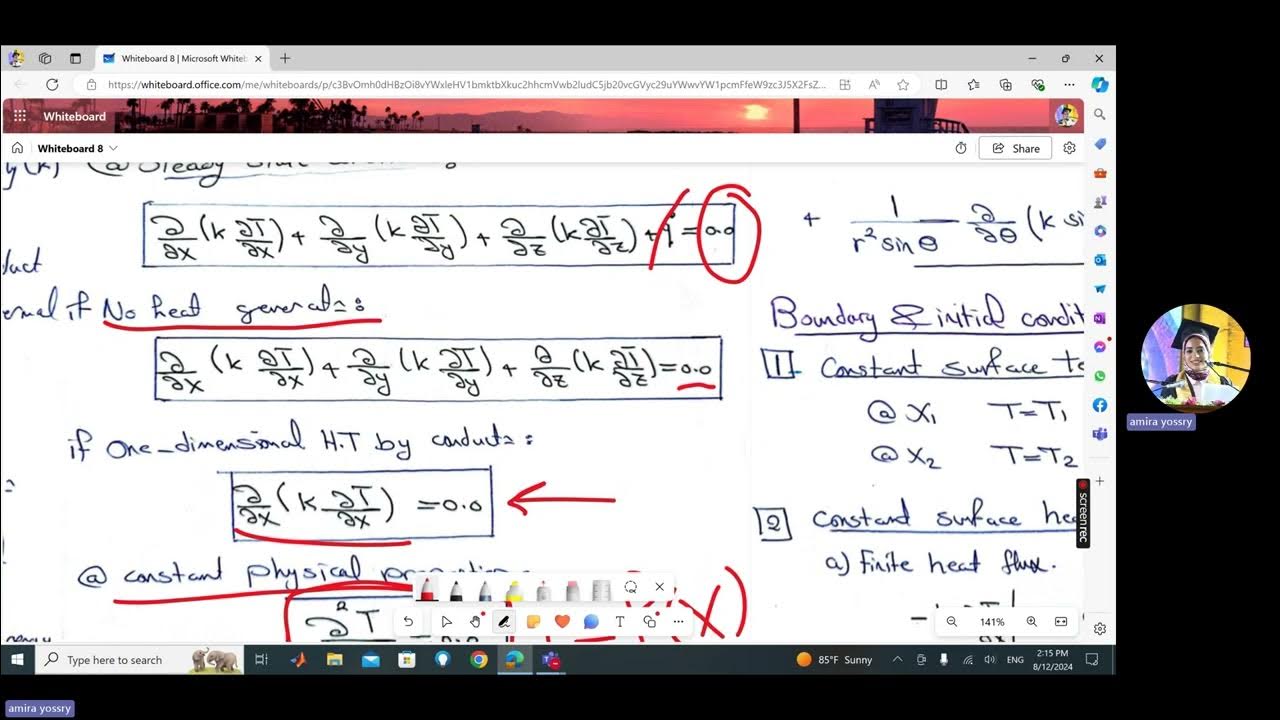 Whiteboard 8 | Microsoft Whiteb
https://whiteboard.office.com/me/whiteboards/p/c3BvOmh0dHBzOi8vYWxleHV1bmktbXkuc2hhcmVwb2ludC5jb20vcGVyc29uYWwvYW1pcmFfeW9zc3J5X2FsZ...
Whiteboard
Whiteboard 8
Share
@ Steady State
∂/∂x (k ∂T/∂x) + ∂/∂y (k ∂T/∂y) + ∂/∂z (k ∂T/∂z) + q̇ = 0.0
duct
ernal if No heat generat=:
∂/∂x (k ∂T/∂x) + ∂/∂y (k ∂T/∂y) + ∂/∂z (k ∂T/∂z) = 0.0
if One-dimensional H.T by conduct=:
∂/∂x (k ∂T/∂x) = 0.0
@ constant physical
∂²T
(x)
+ 1/(r² sin θ) ∂/∂θ (k si
Boundary & initial condit
1 Constant surface te
@ x₁ T=T₁
@ x₂ T=T₂
2 Constant surface hea
a) Finite heat flux.
141%
screen rec
Type here to search
85°F Sunny
ENG
2:15 PM
8/12/2024
amira yossry
amira yossry